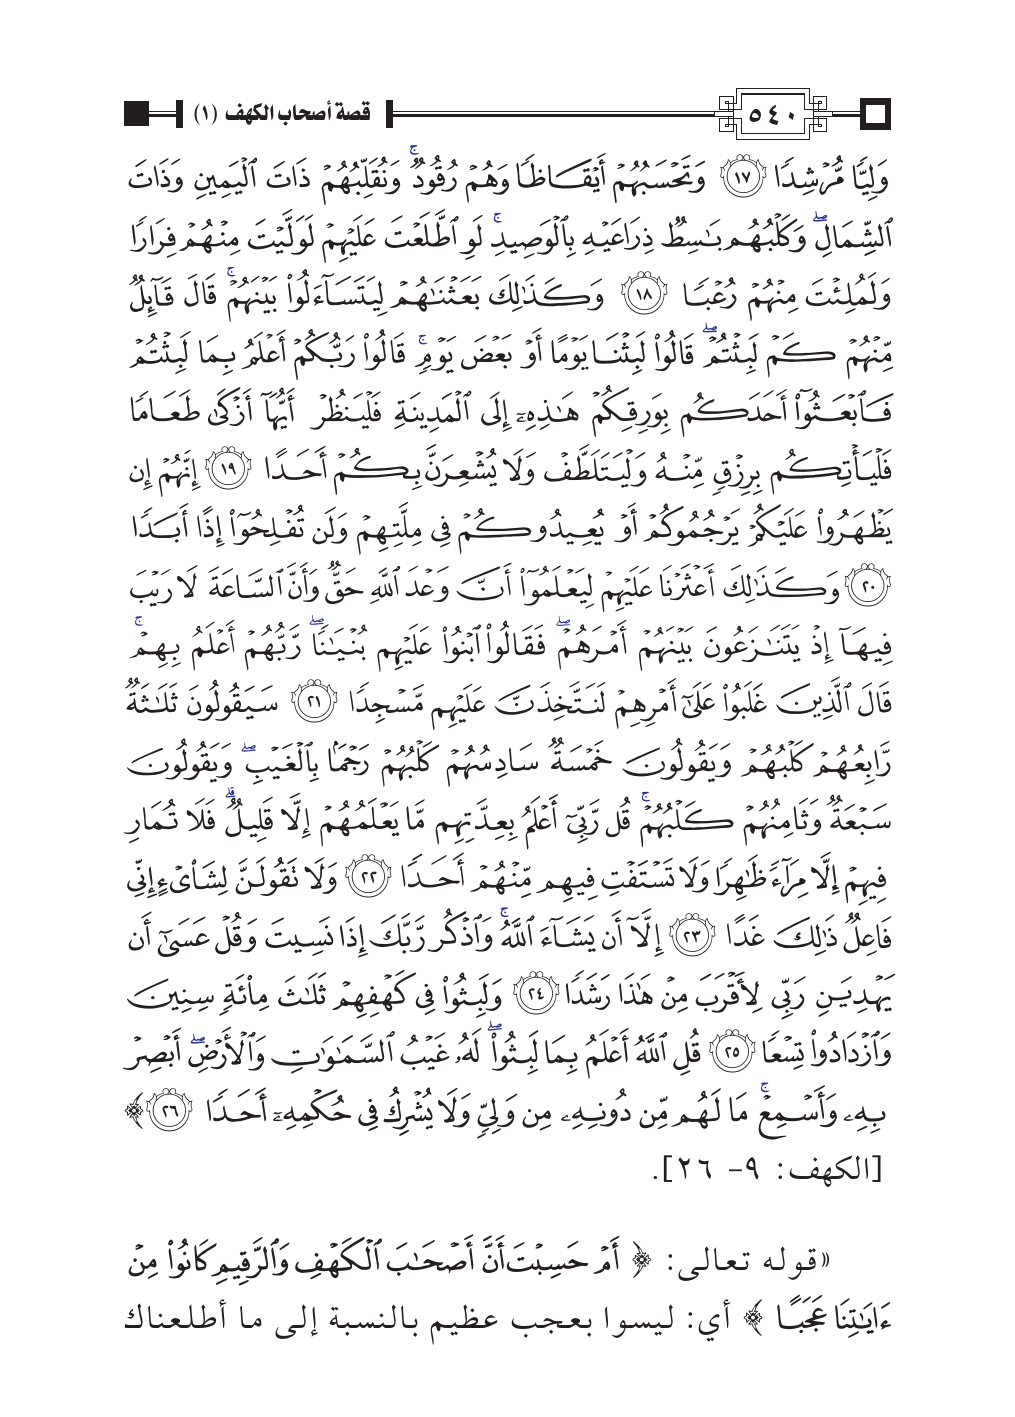 ٥٤٠ قصة أصحاب الكهف (١)
وَلِيًّا مُّرْشِدًا ١٧ وَتَحْسَبُهُمْ أَيْقَاظًا وَهُمْ رُقُودٌ ۚ وَنُقَلِّبُهُمْ ذَاتَ الْيَمِينِ وَذَاتَ
ٱلشِّمَالِ ۖ وَكَلْبُهُم بَٰسِطٌ ذِرَاعَيْهِ بِٱلْوَصِيدِ ۚ لَوِ ٱطَّلَعْتَ عَلَيْهِمْ لَوَلَّيْتَ مِنْهُمْ فِرَارًا
وَلَمُلِئْتَ مِنْهُمْ رُعْبًا ١٨ وَكَذَٰلِكَ بَعَثْنَٰهُمْ لِيَتَسَآءَلُوا۟ بَيْنَهُمْ ۚ قَالَ قَآئِلٌ
مِّنْهُمْ كَمْ لَبِثْتُمْ ۖ قَالُوا۟ لَبِثْنَا يَوْمًا أَوْ بَعْضَ يَوْمٍ ۚ قَالُوا۟ رَبُّكُمْ أَعْلَمُ بِمَا لَبِثْتُمْ
فَٱبْعَثُوٓا۟ أَحَدَكُم بِوَرِقِكُمْ هَٰذِهِۦٓ إِلَى ٱلْمَدِينَةِ فَلْيَنظُرْ أَيُّهَآ أَزْكَىٰ طَعَامًا
فَلْيَأْتِكُم بِرِزْقٍ مِّنْهُ وَلْيَتَلَطَّفْ وَلَا يُشْعِرَنَّ بِكُمْ أَحَدًا ١٩ إِنَّهُمْ إِن
يَظْهَرُوا۟ عَلَيْكُمْ يَرْجُمُوكُمْ أَوْ يُعِيدُوكُمْ فِى مِلَّتِهِمْ وَلَن تُفْلِحُوٓا۟ إِذًا أَبَدًا
٢٠ وَكَذَٰلِكَ أَعْثَرْنَا عَلَيْهِمْ لِيَعْلَمُوٓا۟ أَنَّ وَعْدَ ٱللَّهِ حَقٌّ وَأَنَّ ٱلسَّاعَةَ لَا رَيْبَ
فِيهَآ إِذْ يَتَنَٰزَعُونَ بَيْنَهُمْ أَمْرَهُمْ ۖ فَقَالُوا۟ ٱبْنُوا۟ عَلَيْهِم بُنْيَٰنًا ۖ رَّبُّهُمْ أَعْلَمُ بِهِمْ ۚ
قَالَ ٱلَّذِينَ غَلَبُوا۟ عَلَىٰٓ أَمْرِهِمْ لَنَتَّخِذَنَّ عَلَيْهِم مَّسْجِدًا ٢١ سَيَقُولُونَ ثَلَٰثَةٌ
رَّابِعُهُمْ كَلْبُهُمْ وَيَقُولُونَ خَمْسَةٌ سَادِسُهُمْ كَلْبُهُمْ رَجْمًۢا بِٱلْغَيْبِ ۖ وَيَقُولُونَ
سَبْعَةٌ وَثَامِنُهُمْ كَلْبُهُمْ ۚ قُل رَّبِّىٓ أَعْلَمُ بِعِدَّتِهِم مَّا يَعْلَمُهُمْ إِلَّا قَلِيلٌ ۗ فَلَا تُمَارِ
فِيهِمْ إِلَّا مِرَآءً ظَٰهِرًا وَلَا تَسْتَفْتِ فِيهِم مِّنْهُمْ أَحَدًا ٢٢ وَلَا تَقُولَنَّ لِشَا۟ىْءٍ إِنِّى
فَاعِلٌ ذَٰلِكَ غَدًا ٢٣ إِلَّآ أَن يَشَآءَ ٱللَّهُ ۚ وَٱذْكُر رَّبَّكَ إِذَا نَسِيتَ وَقُلْ عَسَىٰٓ أَن
يَهْدِيَنِ رَبِّى لِأَقْرَبَ مِنْ هَٰذَا رَشَدًا ٢٤ وَلَبِثُوا۟ فِى كَهْفِهِمْ ثَلَٰثَ مِا۟ئَةٍ سِنِينَ
وَٱزْدَادُوا۟ تِسْعًا ٢٥ قُلِ ٱللَّهُ أَعْلَمُ بِمَا لَبِثُوا۟ ۖ لَهُۥ غَيْبُ ٱلسَّمَٰوَٰتِ وَٱلْأَرْضِ ۖ أَبْصِرْ
بِهِۦ وَأَسْمِعْ ۚ مَا لَهُم مِّن دُونِهِۦ مِن وَلِىٍّ وَلَا يُشْرِكُ فِى حُكْمِهِۦٓ أَحَدًا ٢٦ ﴾
[الكهف: ٩- ٢٦].
«قوله تعالى: ﴿ أَمْ حَسِبْتَ أَنَّ أَصْحَٰبَ ٱلْكَهْفِ وَٱلرَّقِيمِ كَانُوا۟ مِنْ
ءَايَٰتِنَا عَجَبًا ﴾ أي: ليسوا بعجب عظيم بالنسبة إلى ما أطلعناك